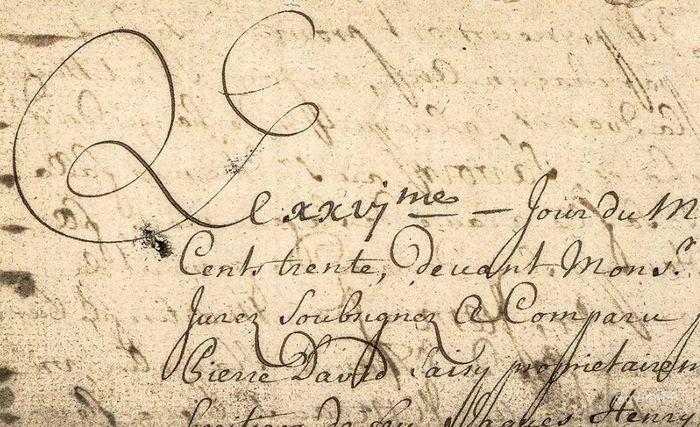 Le xxvj.me – Jour du M
Cents trente, devant Mons.r
Jurez Soubsignez a Comparu
Pierre David Sassy proprietaire
de feu Jaques Henry